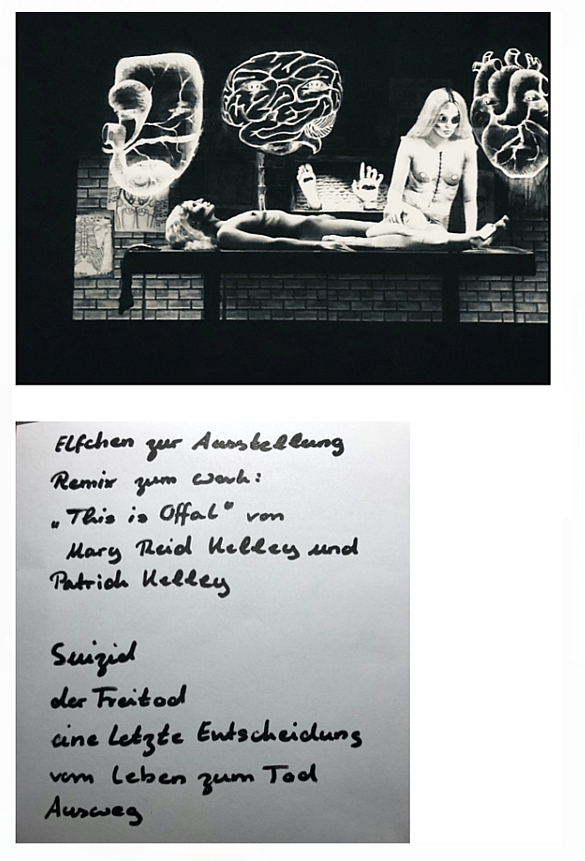 Elfchen zur Ausstellung
Remix zum Werk:
„This is Offal" von
Mary Reid Kelley und
Patrick Kelley
Suizid
der Freitod
eine letzte Entscheidung
vom Leben zum Tod
Ausweg